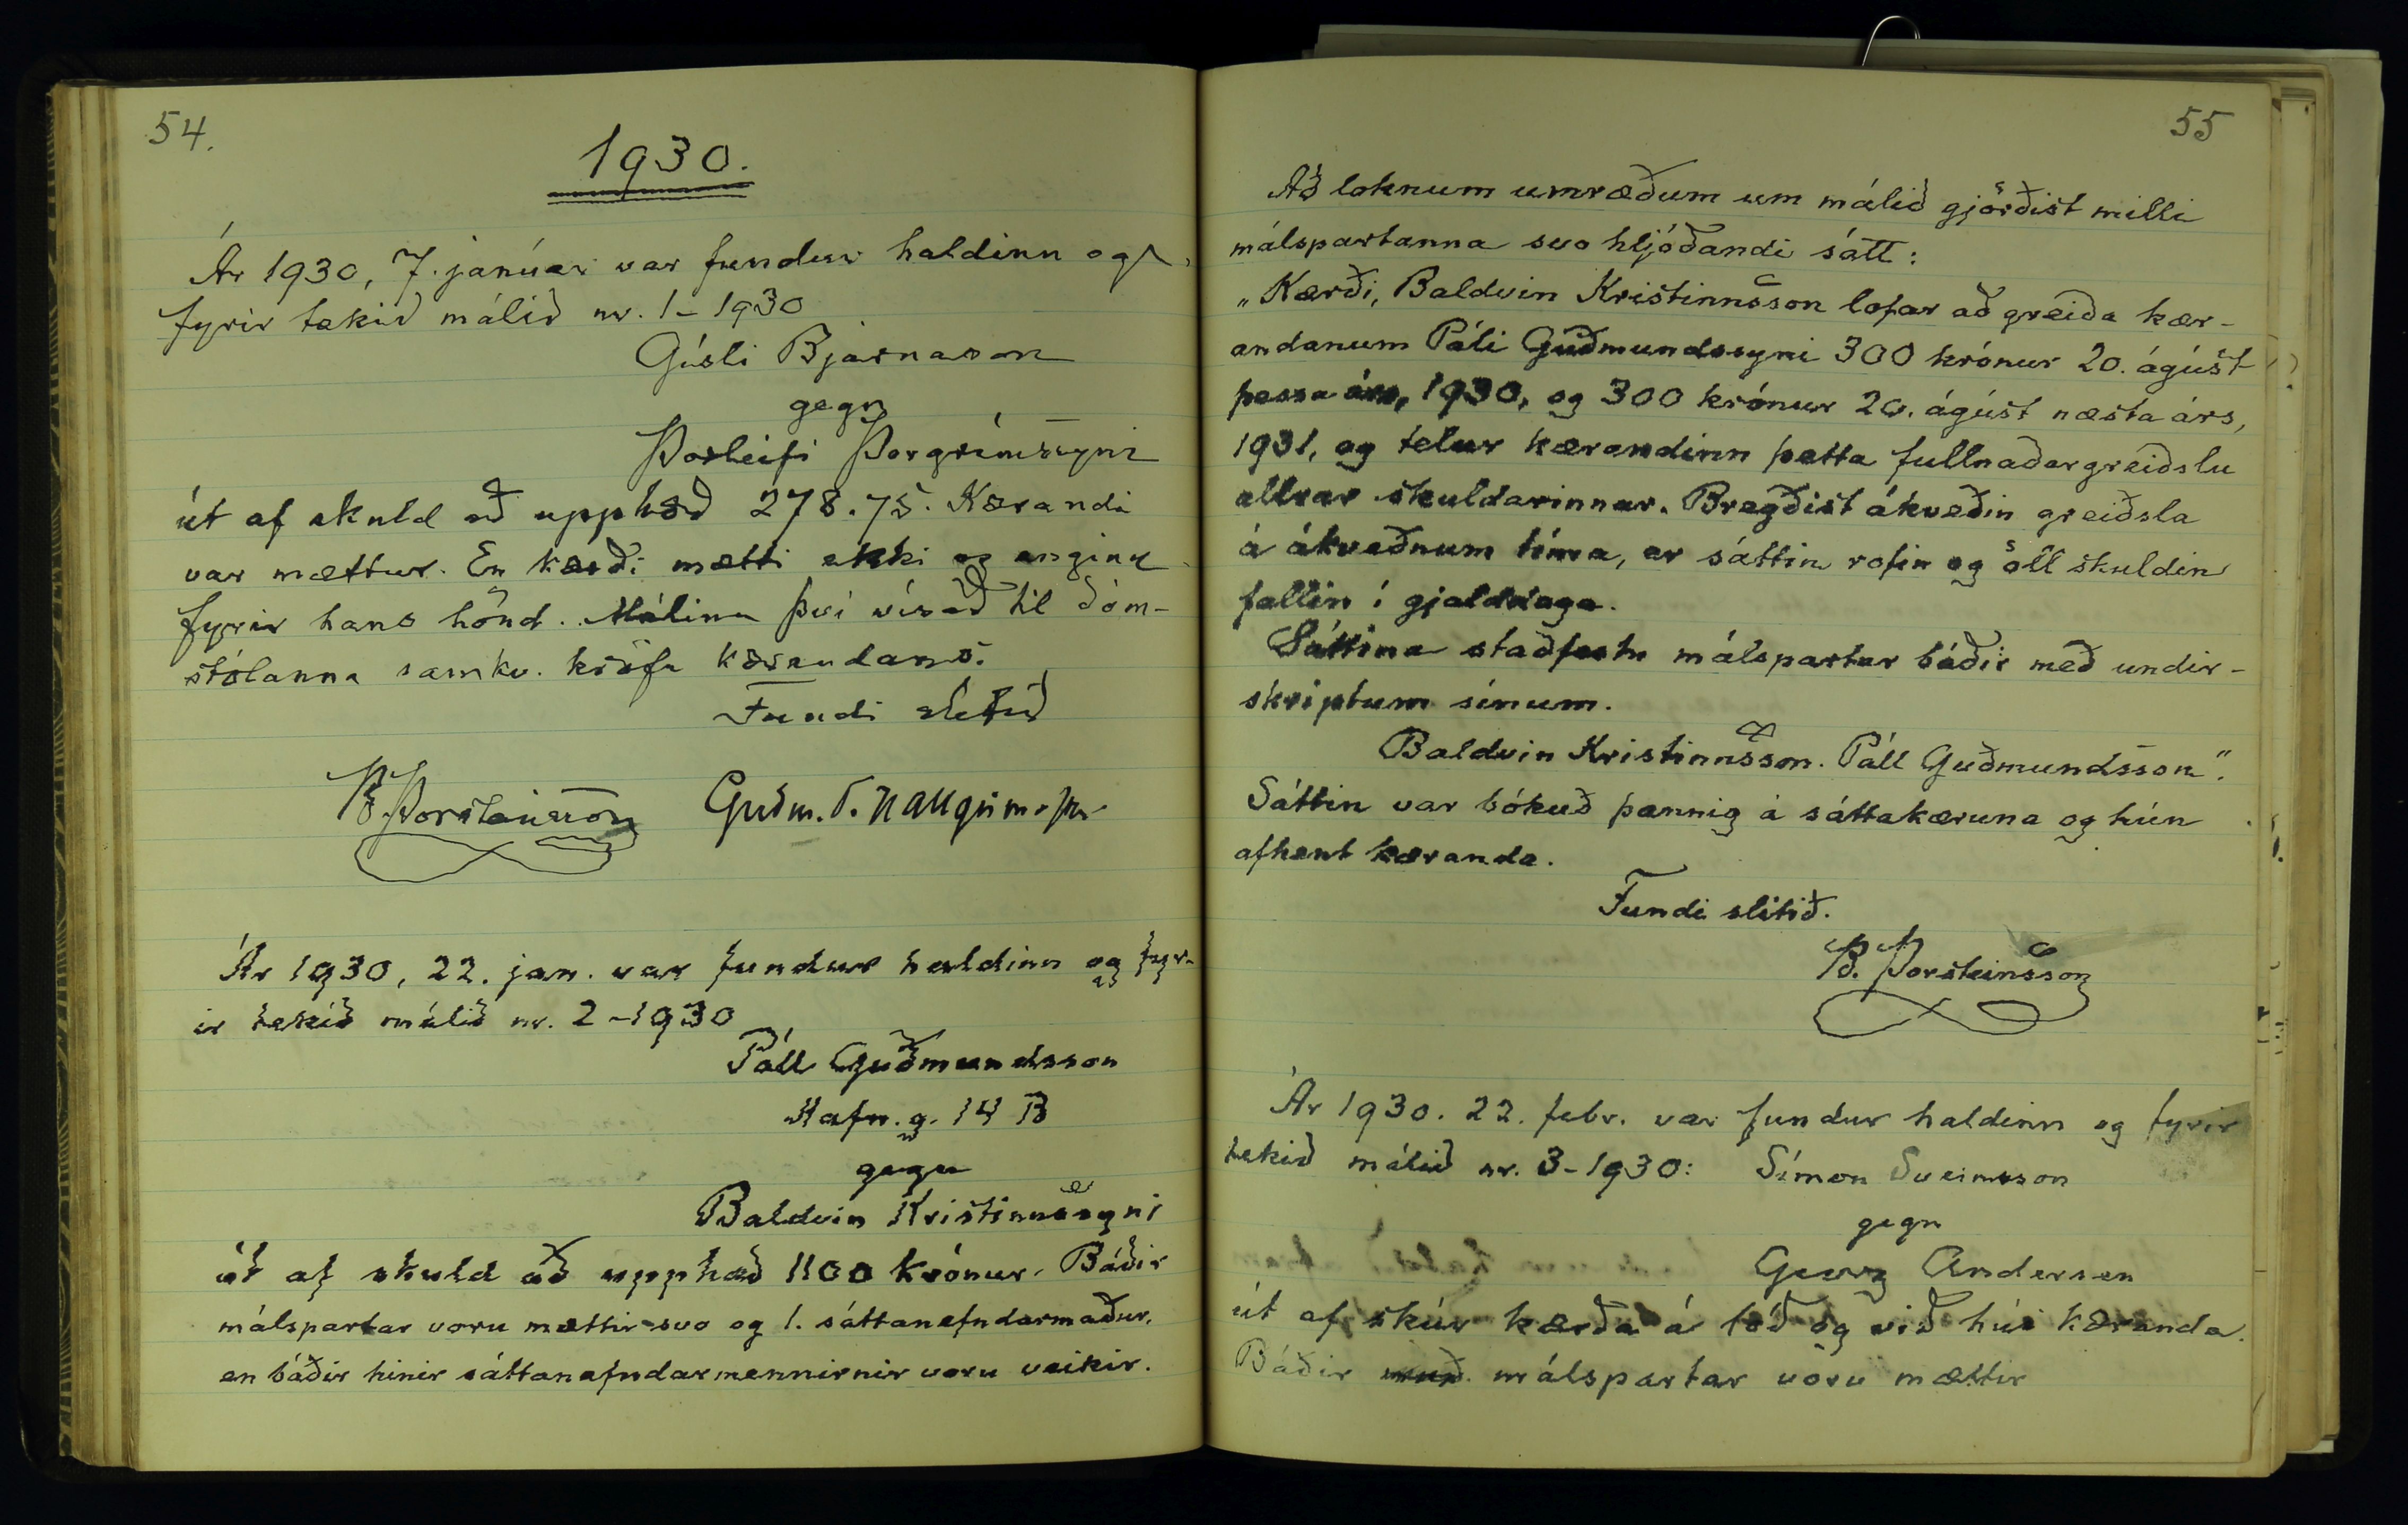 54.
1930.
Ár 1930, 7. janúar var fundur haldinn og
fyrir tekið málið nr. 1-1930
Gísli Bjarnason
gegn
Þorleifi Þorgrímssyni
út af skuld að upphæð 278.75. Kærandi
var mættur. En kærði mætti ekki og enginn
fyrir hans hönd. Málinu því vísað til dóm-
stólanna samkv. kröfu kærandans.
Fundi slitið
Þ. Þorsteinsson Guðm.
Ár 1930, 22. jan. var fundur haldinn og fyr-
ir tekið málið nr. 2-1930
Páll Guðmundsson
Hafn.g. 14 B
gegn
Baldvin Kristinnssyni
út af skuld að upphæð 1100 krónur. Báðir
málspartar voru mættir svo og 1. sáttanefndarmaður,
en báðir hinir sáttanefndarmennirnir voru veikir.
55
Að loknum umræðum um málið gjörðist milli
málspartanna svo hljóðandi sátt:
„Kærði, Baldvin Kristinnsson lofar að greiða kær-
andanum Páli Guðmundssyni 300 krónur 20. ágúst
þessa árs, 1930, og 300 krónur 20. ágúst næsta árs,
1931, og telur kærandinn þetta fullnaðargreiðslu
allrar skuldarinnar. Bregðist ákveðin greiðsla
á ákveðnum tíma, er sáttin rofin og öll skuldin
fallin í gjalddaga.
Sáttina staðfestu málspartar báðir með undir-
skriptum sínum.
Baldvin Kristinnsson. Páll Guðmundsson“.
Sáttin var bókuð þannig á sáttakæruna og hún
afhent kæranda.
Fundi slitið.
Þ. Þorsteinsson
Ár 1930. 22. febr. var fundur haldinn og fyrir
tekið málið nr. 3-1930: Símon Sveinsson
gegn
Georg Andersen
út af skúr kærða á lóð og við hús kæranda.
Báðir málspartar voru mættir